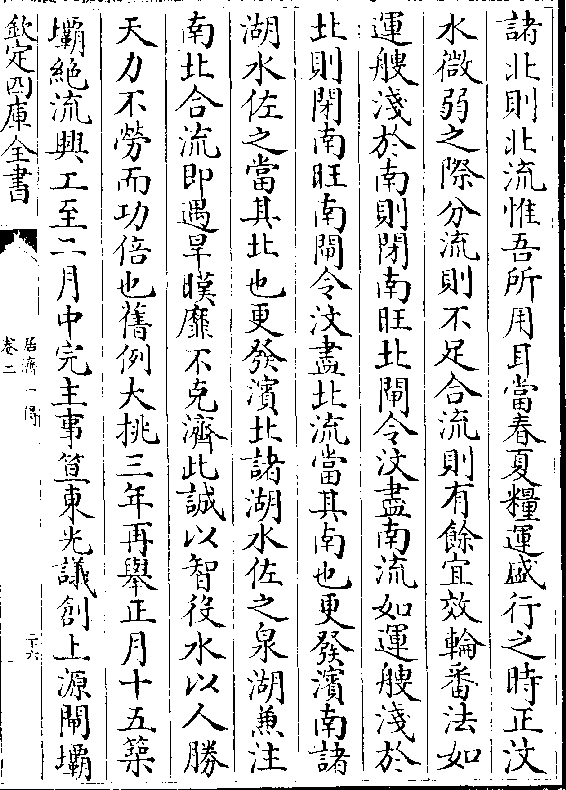 諸北則北流惟吾所用耳當春夏糧運盛行之時正汶
水微弱之際分流則不足合流則有餘宜效輪番法如
運艘淺於南則閉南旺北閘令汶盡南流如運艘淺於
北則閉南旺南閘令汶盡北流當其南也更發濱南諸
湖水佐之當其北也更發濱北諸湖水佐之泉湖兼注
南北合流即遇旱暵靡不克濟此誠以智役水以人勝
天力不勞而功倍也舊例大挑三年再舉正月十五築
壩絕流興工至二月中完主事笪東光議創上源閘壩
欽定四庫全書
居濟一得
卷二
二十六